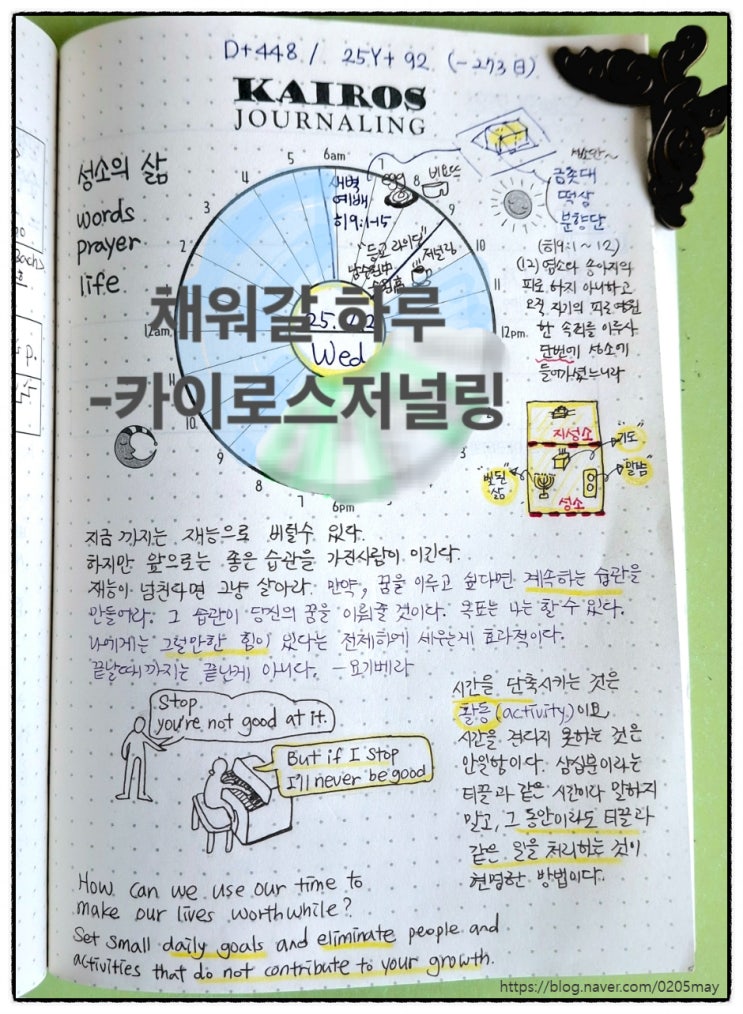 D+448 / 25Y+92 (-273日)
KAIROS
JOURNALING
성소의 삶
words
prayer
life
6am
5
4
3
2
12am
11
10
9
8
7
6pm
7
8
9
10
11
12pm
3
새벽
예배
히9:1-15
저널링
Wed
채워갈 하루
-카이로스저널링
금촛대
떡상
분향단
(히9:1~12)
(12) 염소와 송아지의
피로 하지 아니하고
오직 자기의 피로 영원
한 속죄를 이루사
단번에 성소에
들어가셨느니라
지성소
"기도"
"말씀"
성소
지금 까지는 재능으로 버틸수 있다.
하지만 앞으로는 좋은 습관을 가진사람이 이긴다.
재능이 넘친다면 그냥 살아라. 만약, 꿈을 이루고 싶다면 계속하는 습관을
만들어라. 그 습관이 당신의 꿈을 이뤄줄 것이다. 목표는 나는 할 수 있다.
나에게는 그럴만한 힘이 있다는 전제하에 세우는게 효과적이다.
끝날때까지는 끝난게 아니다. -요기베라
Stop
you're not good at it.
But if I stop
I'll never be good
시간을 단축시키는 것은
활동(activity)이요,
시간을 견디지 못하는 것은
안일함이다. 삼십분이라는
티끌과 같은 시간이라 말하지
말고, 그 동안이라도 티끌과
같은 일을 처리하는 것이
현명한 방법이다.
How can we use our time to
make our lives worthwhile?
Set small daily goals and eliminate people and
activities that do not contribute to your growth.
https://blog.naver.com/0205may